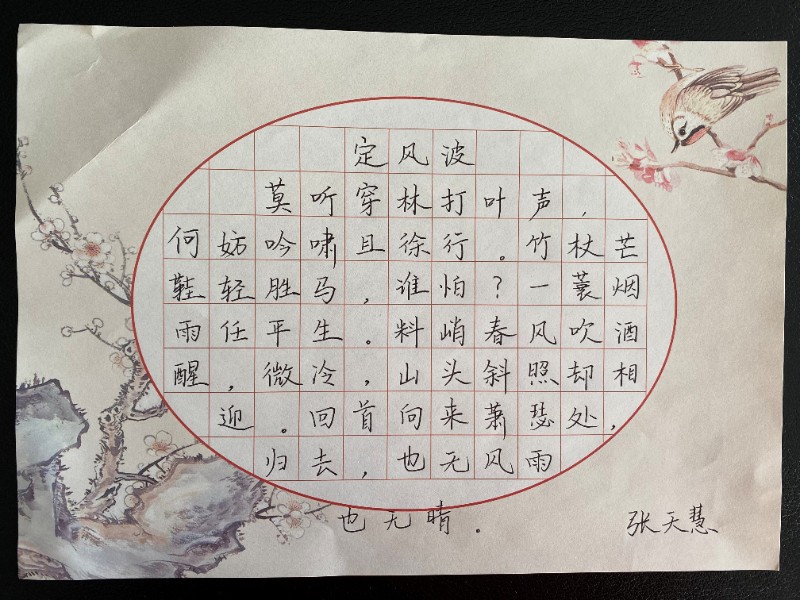 定风波
莫听穿林打叶声,
何妨吟啸且徐行。竹杖芒
鞋轻胜马,谁怕?一蓑烟
雨任平生。料峭春风吹酒
醒,微冷,山头斜照却相
迎。回首向来萧瑟处,
归去,也无风雨
也无晴。
张天慧